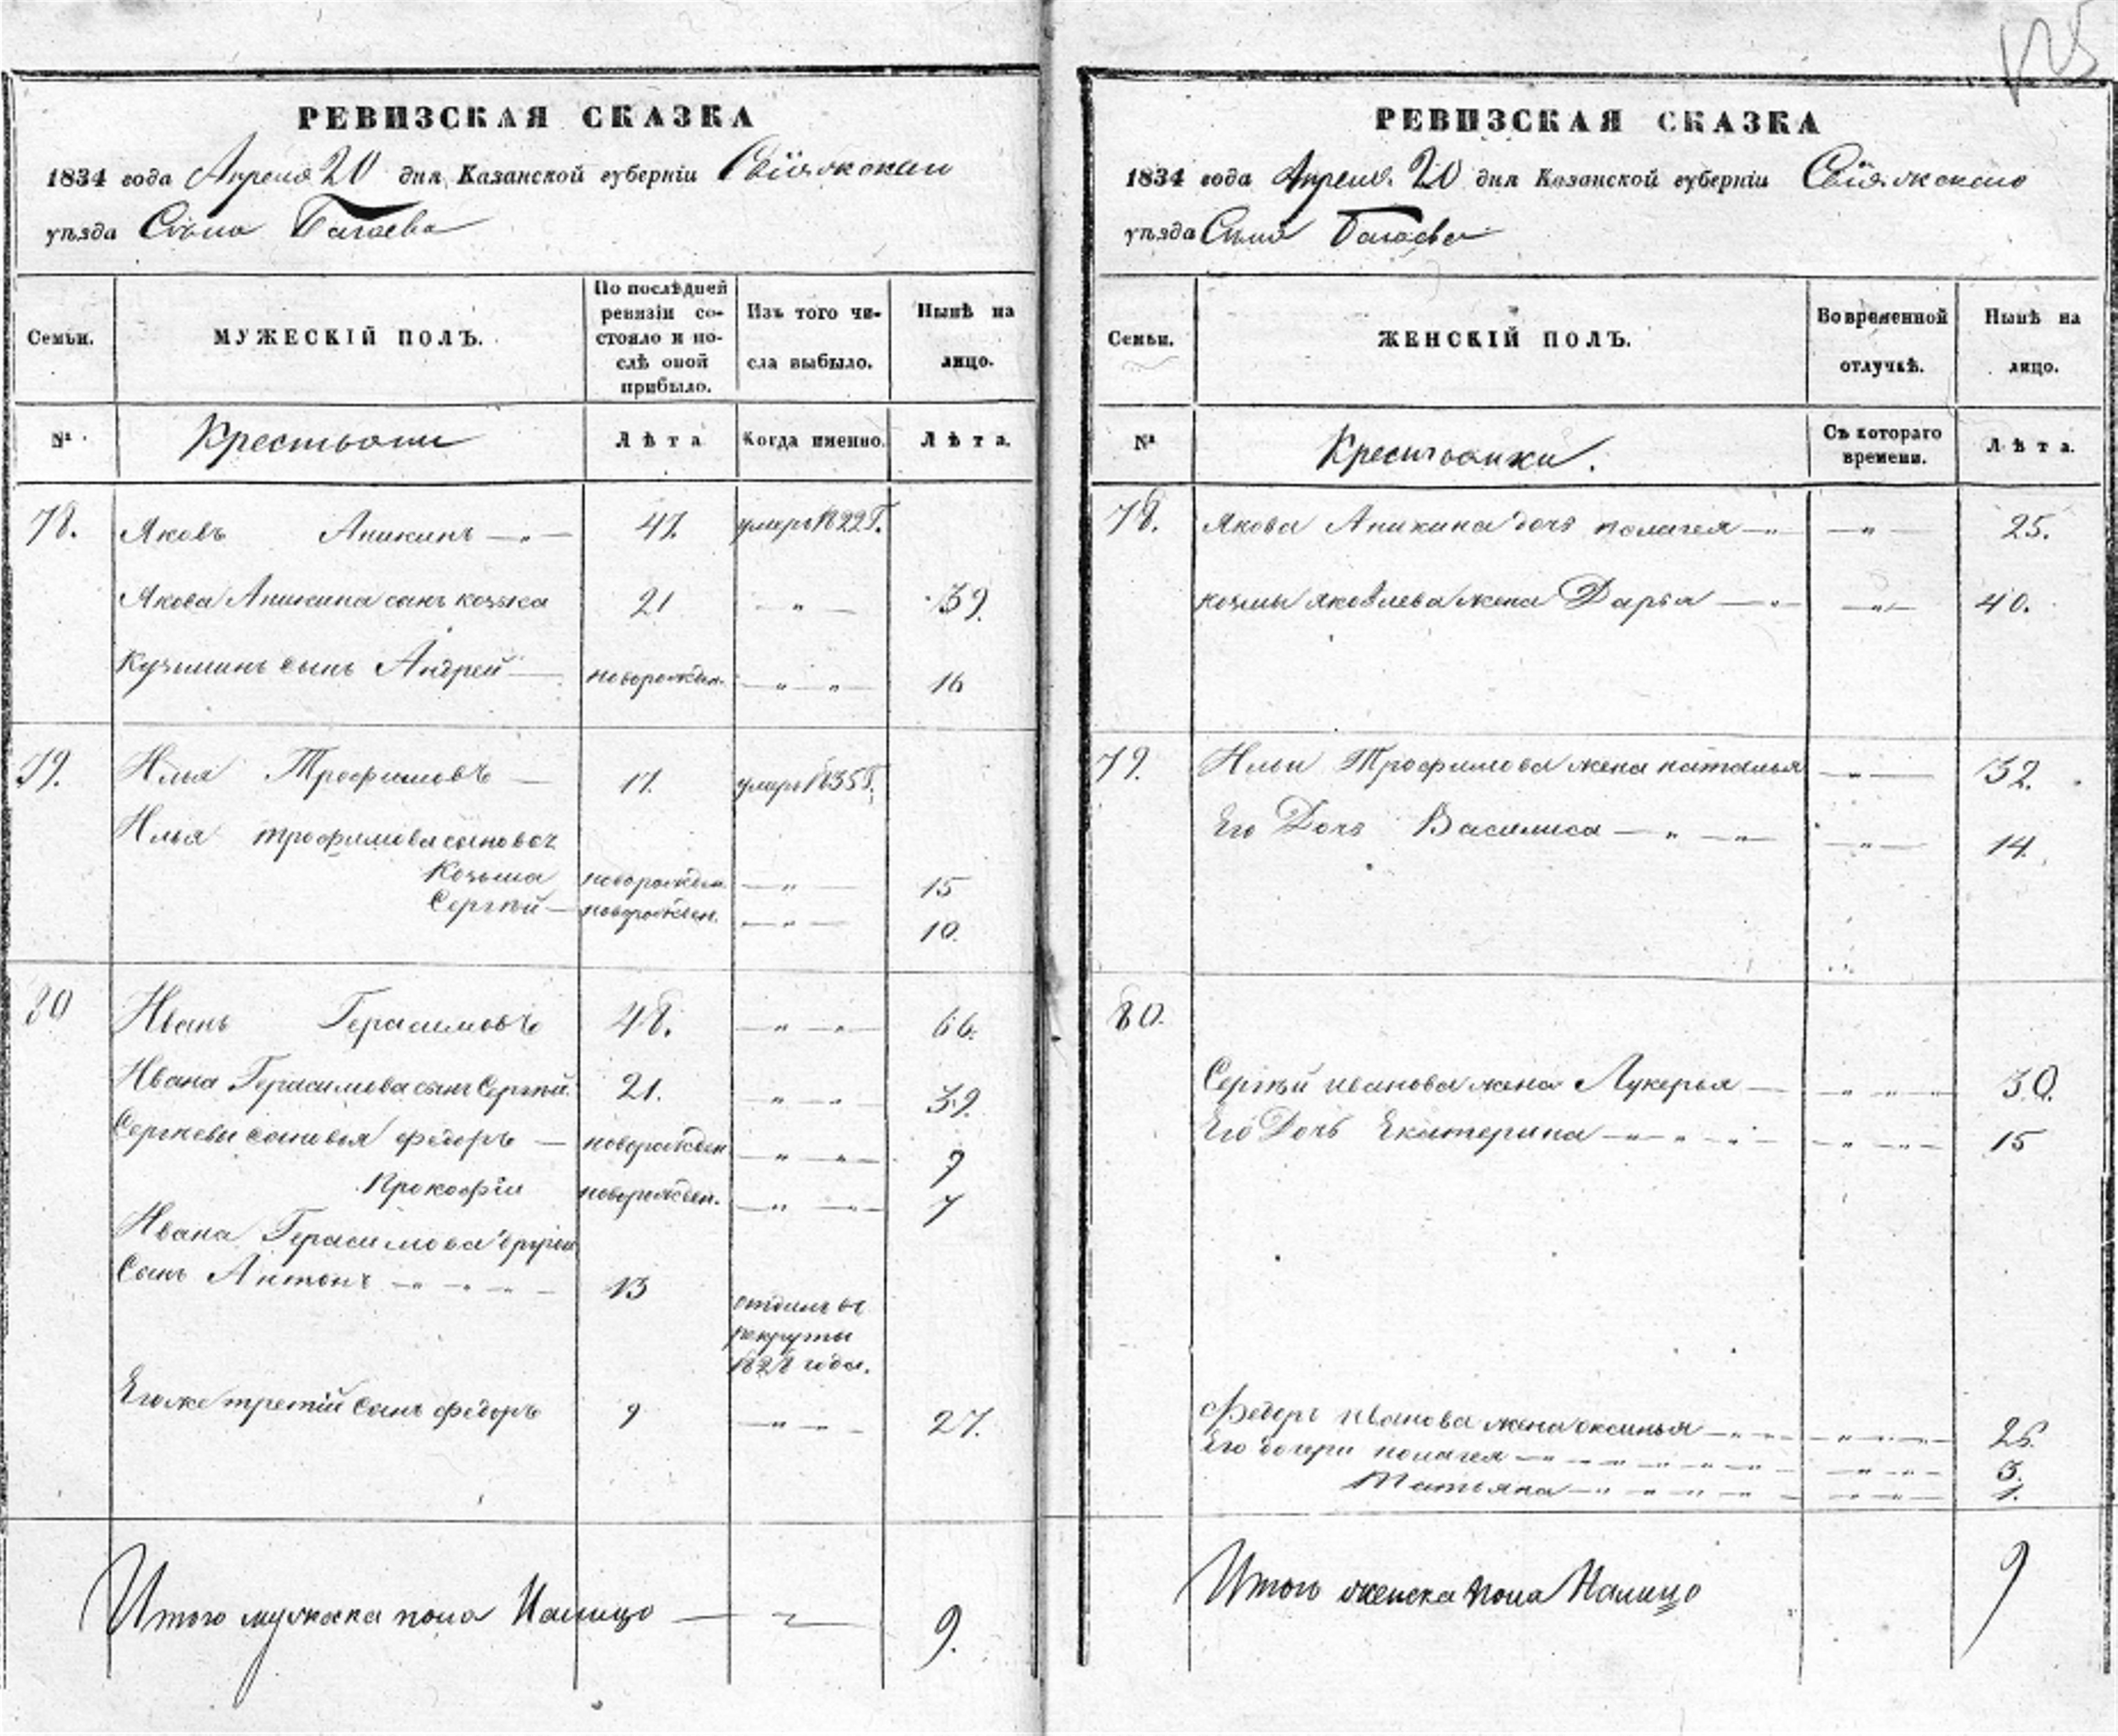 РЕВИЗСКАЯ СКАЗКА
1834 года Апреля 20 дня Казанской губерніи Свіяжскаго
уѣзда Села Багаева
Семьи.
МУЖЕСКІЙ ПОЛЪ.
По послѣдней ревизіи состояло и послѣ оной прибыло.
Изъ того числа выбыло.
Нынѣ на лицо.
№
Крестьяни
Лѣта
Когда именно.
Лѣта.
78. Яковъ Аникинъ 47. умеръ 1822 Г.
Якова Аникина сынъ козьма 21 39.
Кузминъ сынъ Андрей новорожден. 16
79. Илья Трофимовъ 17. умеръ 1835 Г.
Илья трофимова сыновья
Козьма новорожден. 15
Сергѣй новорожден. 10.
80 Иванъ Герасимовъ 48. 66.
Ивана Герасимова сынъ Сергѣй 21. 39.
Сергѣевы сыновья федоръ новорожден 9
Прокофій новорожден. 7
Ивана Герасимова другой
Сынъ Антонъ 13 отданъ въ
рекруты
1828 года.
Егоже третій Сынъ федоръ 9 27.
Итого мужска пола Налицо 9.
125
РЕВИЗСКАЯ СКАЗКА
1834 года Апреля 20 дня Казанской губерніи Свіяжскаго
уѣзда Села Багаева
Семьи.
ЖЕНСКІЙ ПОЛЪ.
Во временной отлучкѣ.
Нынѣ на лицо.
№
Крестьянки.
Съ котораго времени.
Лѣта.
78. Якова Аникина дочь полагея 25.
козмы яковлева жена Дарья 40.
79. Ильи Трофимова жена наталья 32.
Его Дочь Василиса 14.
80.
Сергѣй иванова жена Лукерья 30.
Его Дочь Екатерина 15
Федоръ иванова жена оксинья 26.
Его дочери полагея 3.
Татьяна 1.
Итого женска пола Налицо 9